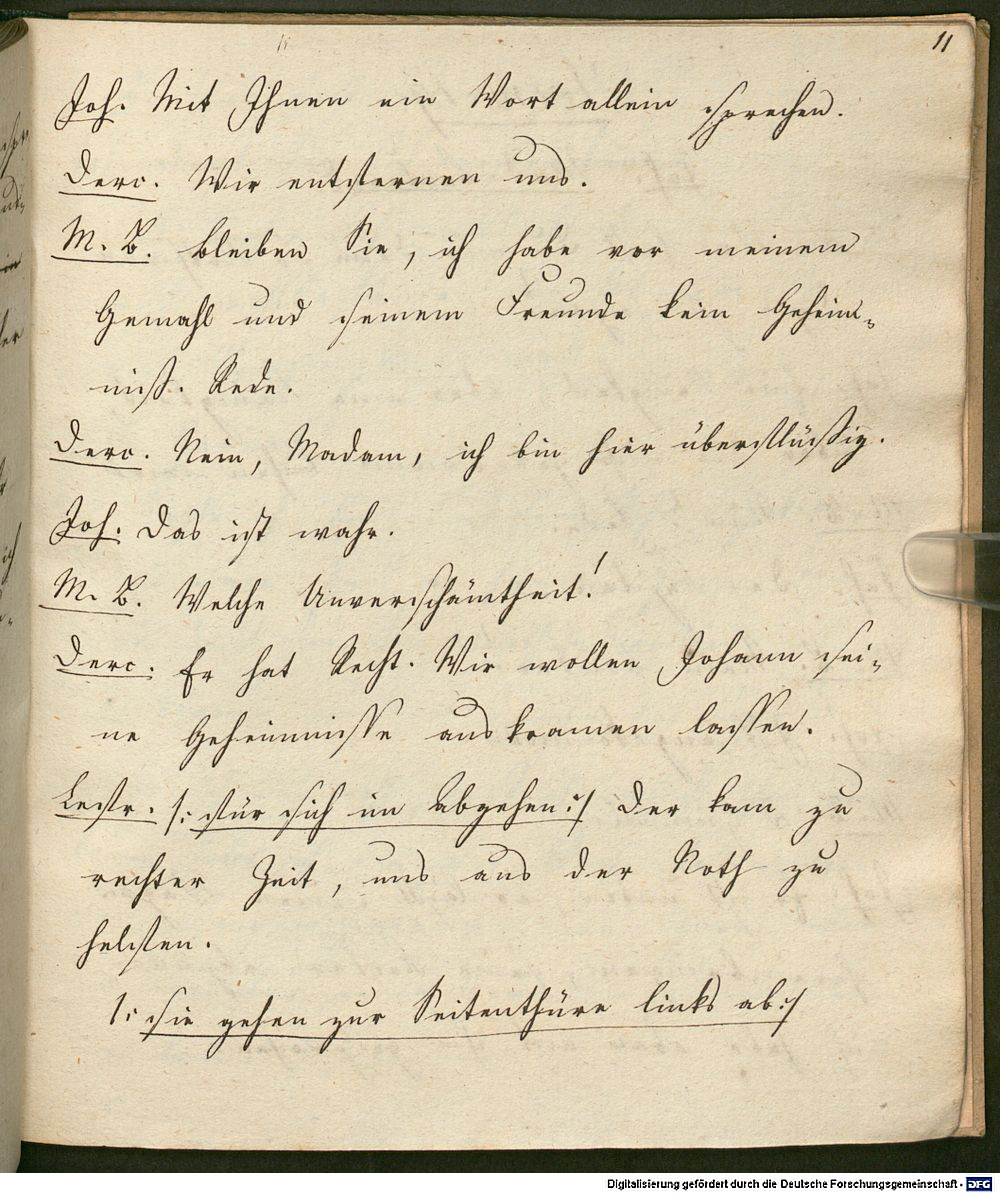 11
Joh. Mit Ihnen ein Wort allein sprechen.
Derv. Wir entfernen uns.
M. B. bleiben Sie, ich habe vor meinem
Gemahl und seinem Freunde kein Geheim-
niß. Rede.
Derv. Nein, Madam, ich bin hier überflüßig.
Joh. Das ist wahr.
M. B. Welche Unverschämtheit!
Derv. Er hat Recht. Wir wollen Johann sei-
ne Geheimnisse auskramen lassen.
Lestr. /: für sich im Abgehen :/ Der kam zu
rechter Zeit, uns aus der Noth zu
helfen.
/: sie gehen zur Seitenthüre links ab :/
Digitalisierung gefördert durch die Deutsche Forschungsgemeinschaft - DFG